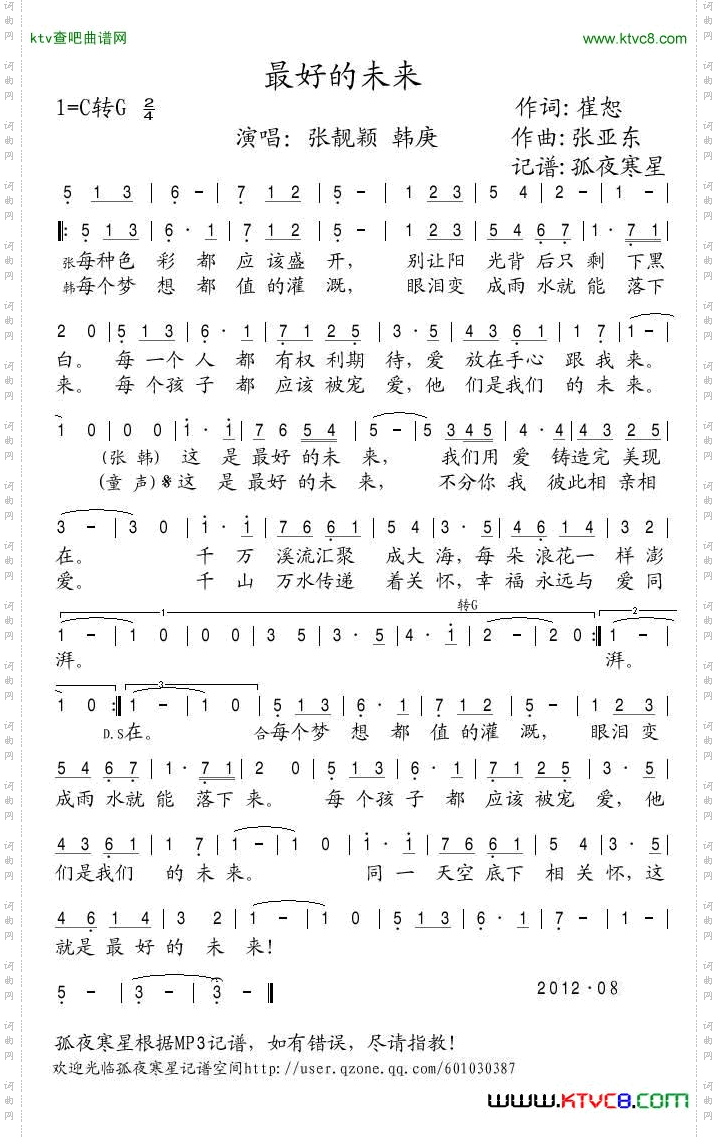 ktv查吧曲谱网 www.ktvc8.com
最好的未来
1=C转G 2/4 作词: 崔恕
演唱: 张靓颖 韩庚 作曲: 张亚东
记谱: 孤夜寒星
5 1 3 | 6 - | 7 1 2 | 5 - | 1 2 3 | 5 4 | 2 - | 1 - |
‖: 5 1 3 | 6 · 1 | 7 1 2 | 5 - | 1 2 3 | 5 4 6 7 | 1 · 7 1 |
张每种色 彩 都 应 该盛 开, 别让阳 光背 后只 剩 下黑
韩每个梦 想 都 值 的灌 溉, 眼泪变 成雨 水就 能 落下
2 0 | 5 1 3 | 6 · 1 | 7 1 2 5 | 3 · 5 | 4 3 6 1 | 1 7 | 1 - |
白。 每 一个 人 都 有权 利期 待,爱 放在手心 跟 我 来。
来。 每 个孩 子 都 应该 被宠 爱,他 们是我们 的 未 来。
1 0 | 0 0 | 1 · 1 | 7 6 5 4 | 5 - | 5 3 4 5 | 5 · 4 | 4 3 2 5 |
(张 韩) 这 是 最好 的 未 来, 我们用 爱 铸造完 美现
(童 声)𝄋这 是 最好 的 未 来, 不分你 我 彼此相 亲相
3 - | 3 0 | 1 · 1 | 7 6 6 1 | 5 4 | 3 · 5 | 4 6 1 4 | 3 2 |
在。 千 万 溪流汇聚 成大 海,每 朵 浪花一 样 澎
爱。 千 山 万水传递 着关 怀,幸 福 永远与 爱 同
1 转G 2
1 - | 1 0 | 0 0 | 3 5 | 3 · 5 | 4 · 1 | 2 - | 2 0 :‖ 1 - |
湃。 湃。
3
1 0 :‖ 1 - | 1 0 | 5 1 3 | 6 · 1 | 7 1 2 | 5 - | 1 2 3 |
D.S在。 合每个梦 想 都 值 的灌 溉, 眼泪 变
5 4 6 7 | 1 · 7 1 | 2 0 | 5 1 3 | 6 · 1 | 7 1 2 5 | 3 · 5 |
成雨 水就 能 落下 来。 每 个孩 子 都 应该 被宠 爱, 他
4 3 6 1 | 1 7 | 1 - | 1 0 | 1 · 1 | 7 6 6 1 | 5 4 | 3 · 5 |
们是我们 的 未 来。 同 一 天空 底下 相 关 怀, 这
4 6 1 4 | 3 2 | 1 - | 1 0 | 5 1 3 | 6 · 1 | 7 - | 1 - |
就是 最 好 的 未 来!
5 - | 3 - | 3 - ‖ 2012·08
孤夜寒星根据MP3记谱, 如有错误, 尽请指教!
欢迎光临孤夜寒星记谱空间http://user.qzone.qq.com/601030387
www.KTVC8.com